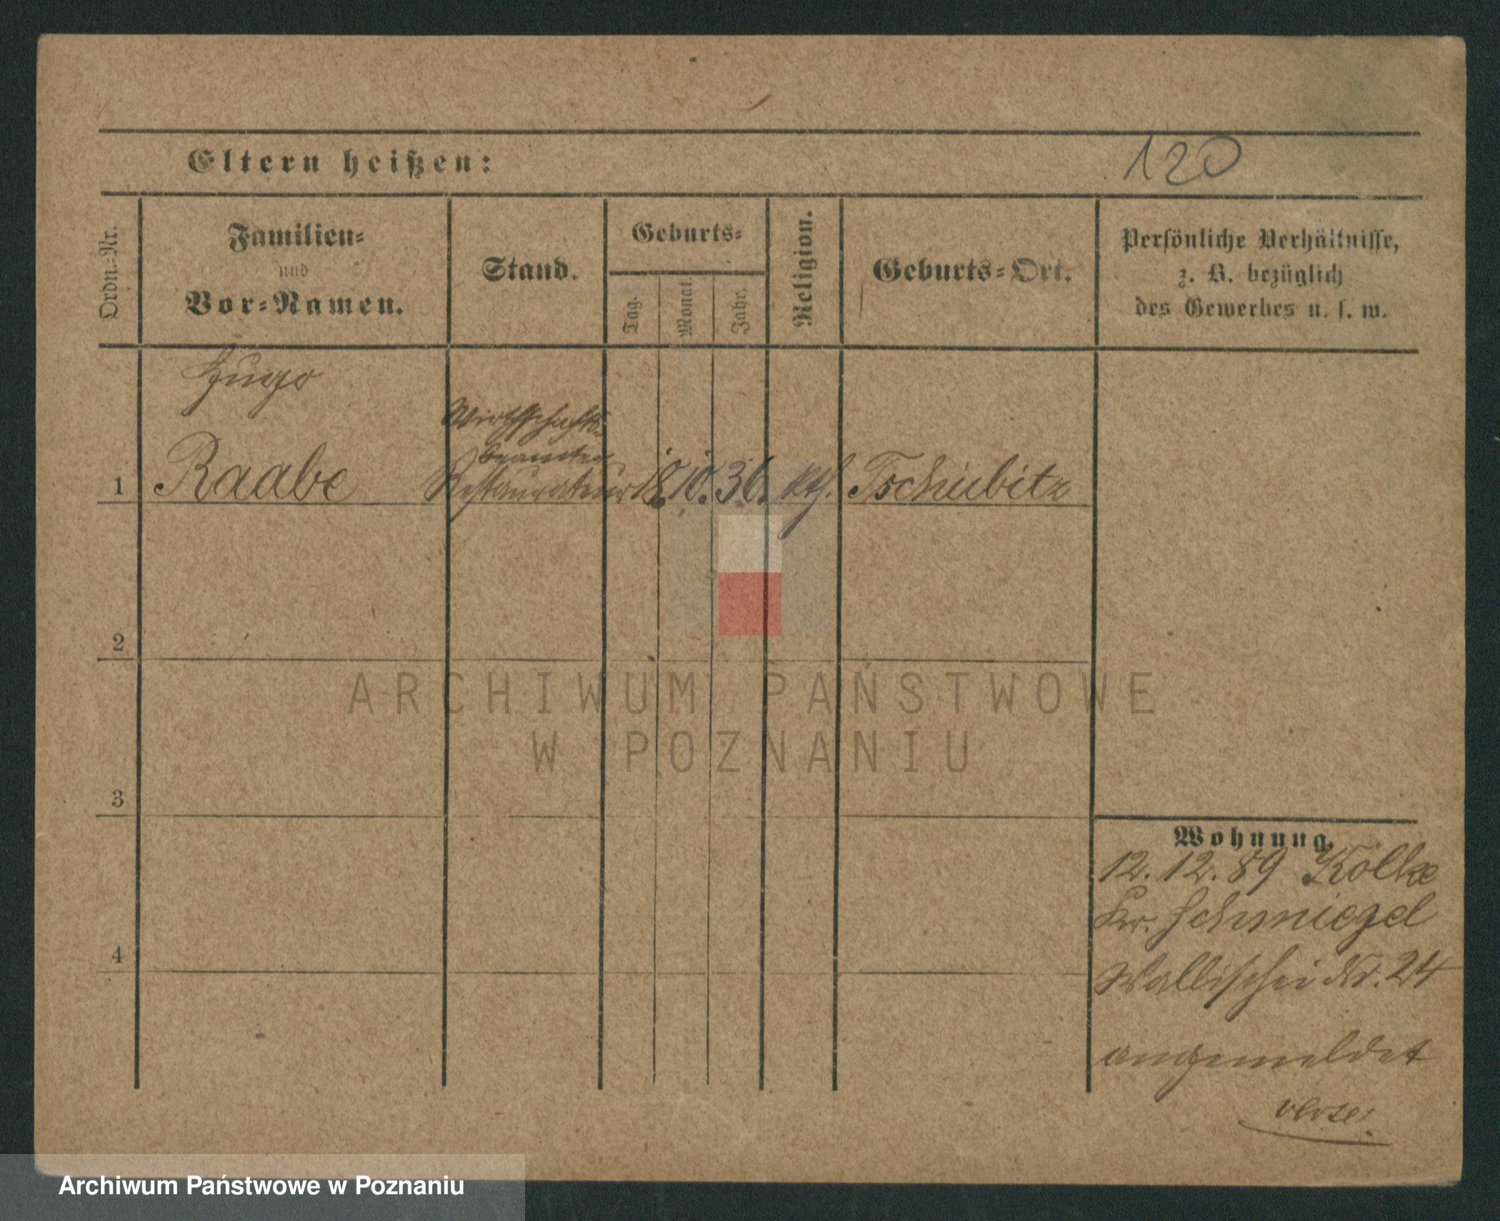 120
Eltern heißen:
Ordn.-Nr.
Familien-
und
Vor-Namen.
Stand.
Geburts-
Tag.
Monat.
Jahr.
Religion.
Geburts-Ort.
Persönliche Verhältnisse,
z. B. bezüglich
des Gewerbes u. s. w.
Hugo
Wirthschafts-
beamter
1 Raabe Restaurateur 18. 10. 36. kth. Tschiebitz
2
3
4
ARCHIWUM PAŃSTWOWE
W POZNANIU
Wohnung.
12.12.89 Kölke
Kr. Schmiegel
Wallischei Nr. 24
angemeldet
Archiwum Państwowe w Poznaniu